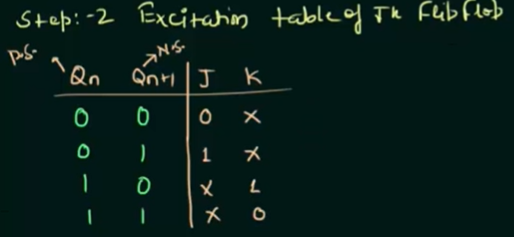 Step:-2 Excitation table of JK Flip Flob
P.S. N.S.
Qn Qn+1 J K
0 0 0 X
0 1 1 X
1 0 X 1
1 1 X 0